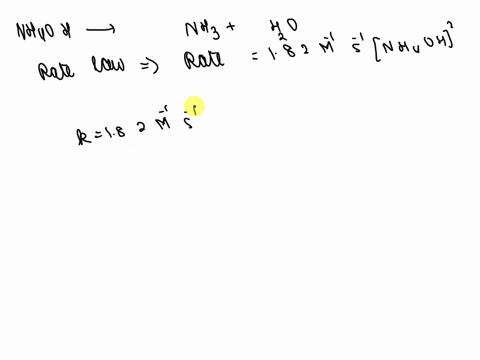 NH4OH ⟶ NH3 + H2O
Rate law ⇒ Rate = 1.82 M⁻¹ s⁻¹ [NH4OH]²
k = 1.82 M⁻¹ s⁻¹